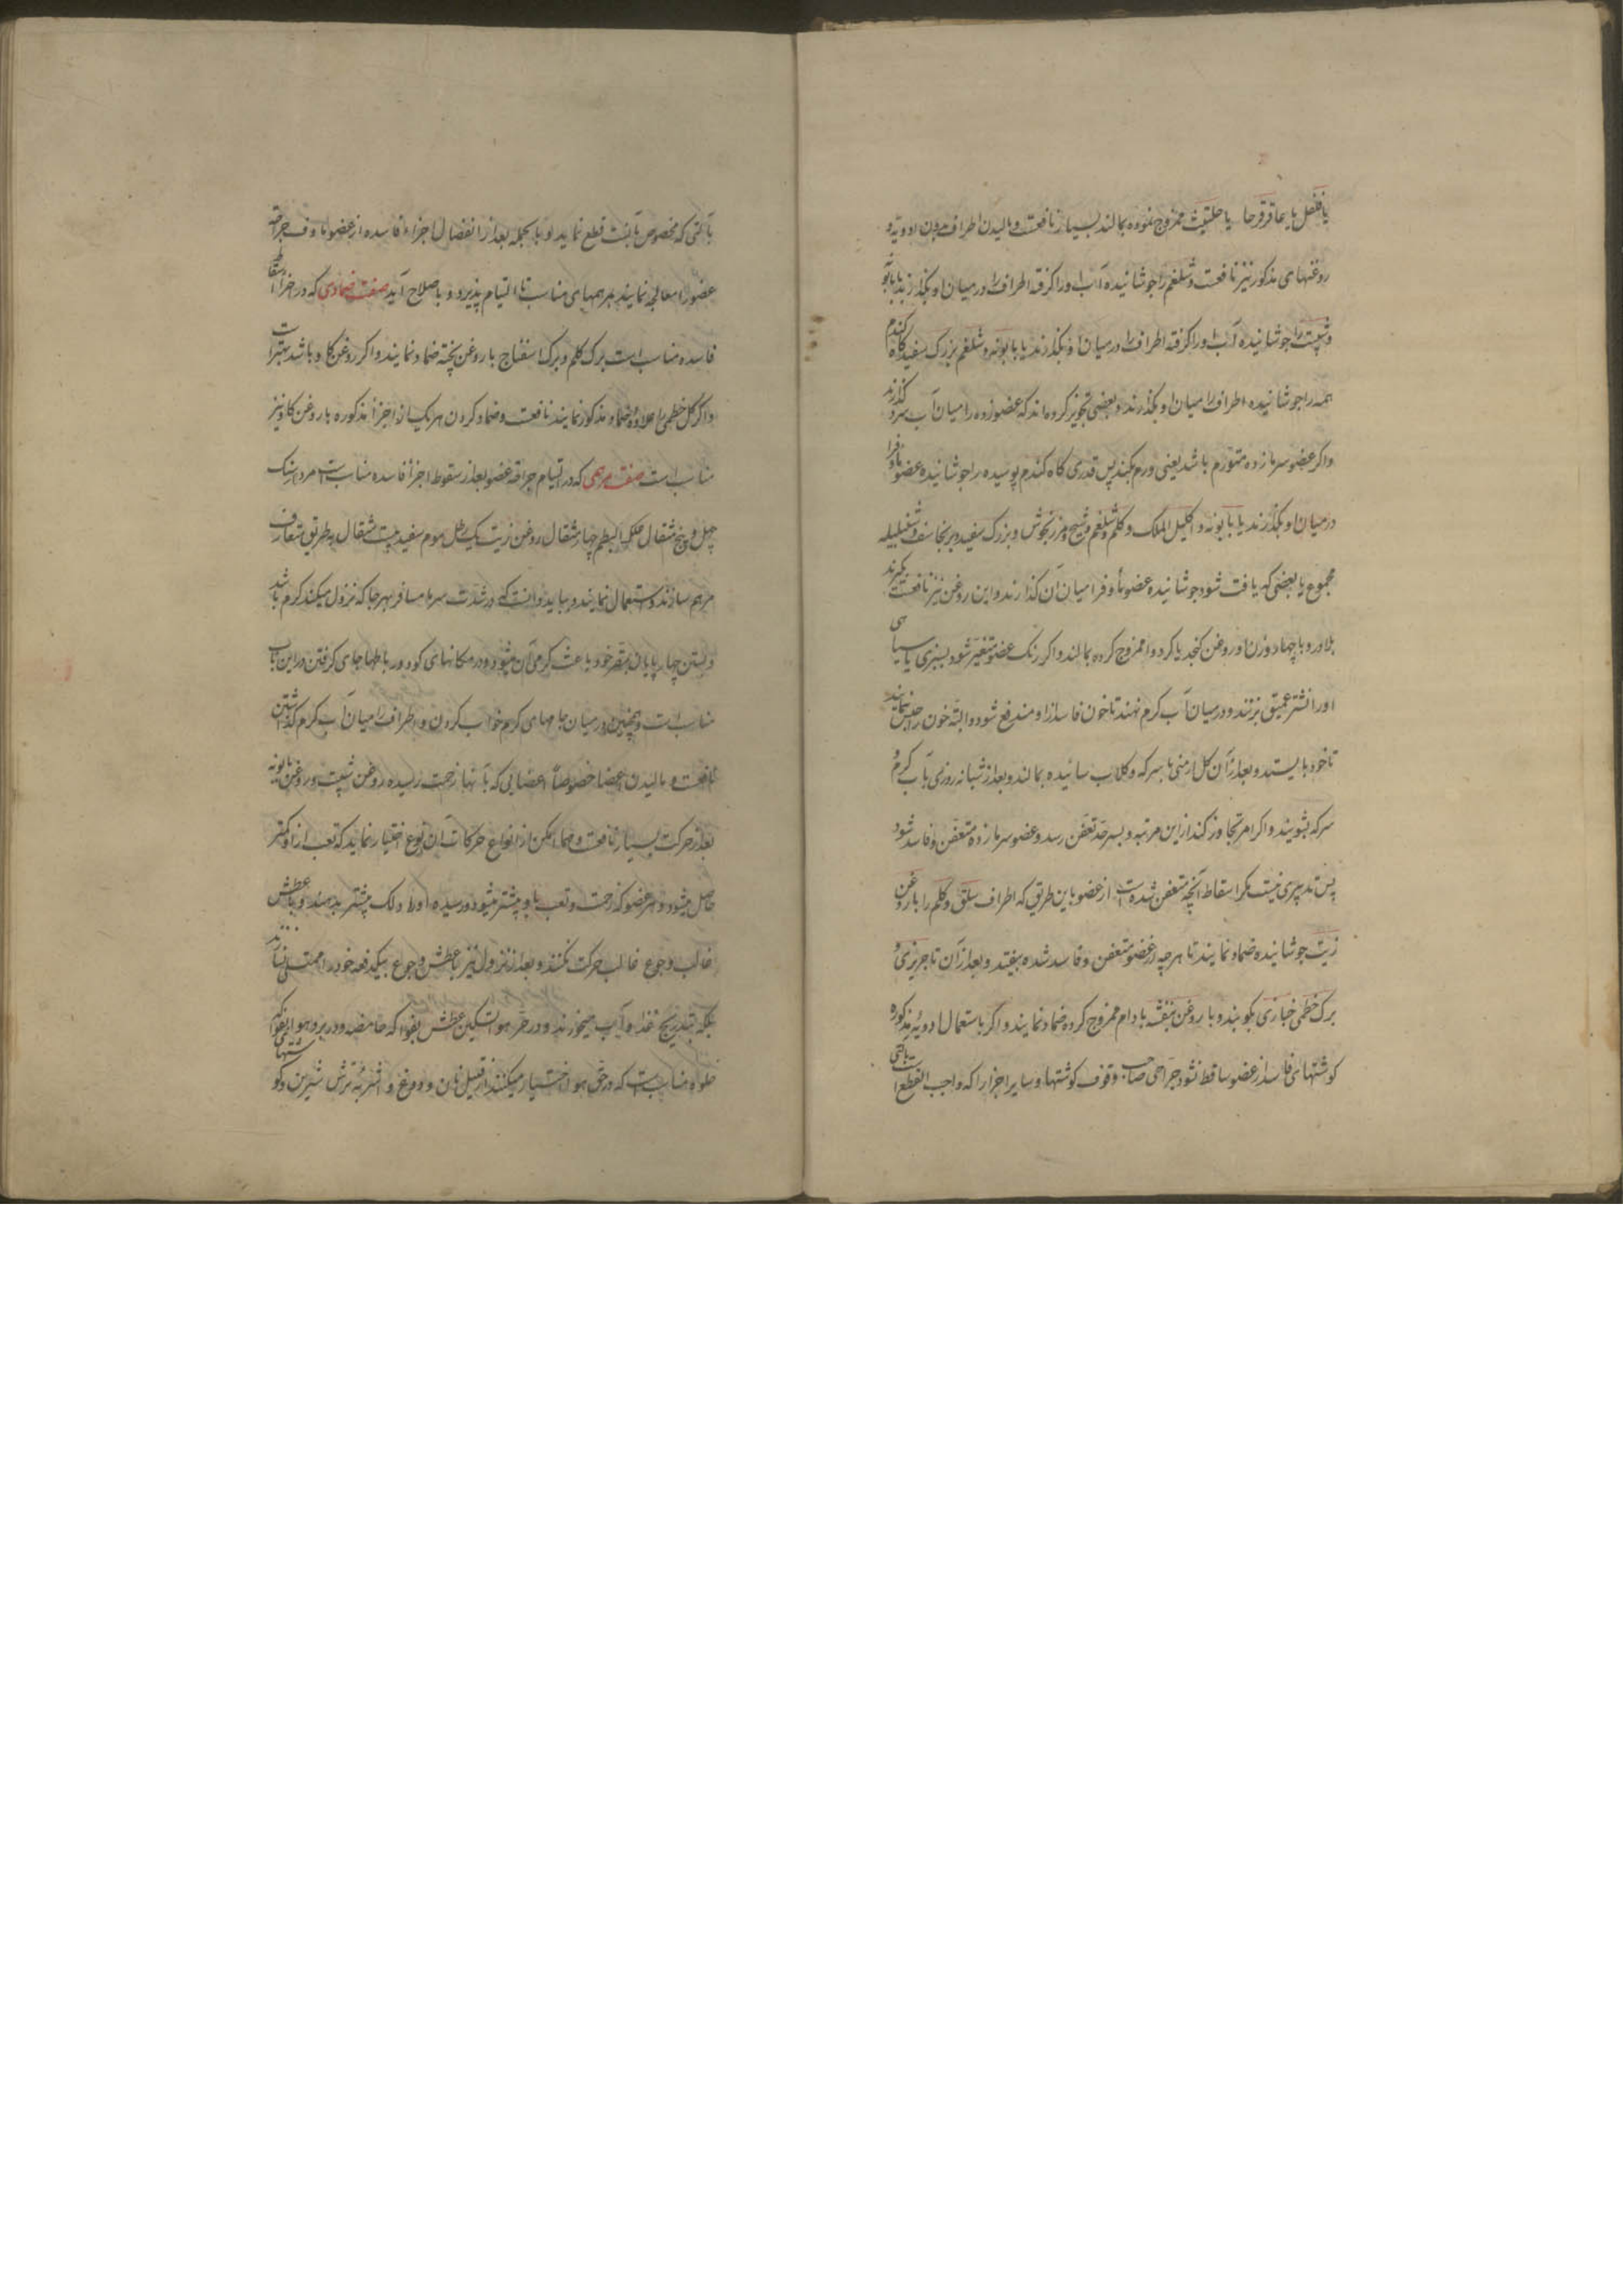 یا فلفل یا عاقرقرحا یا حلتیت ممزوج نموده بمالند بسیار نافعست و مالیدن اطراف بدون ادویه و
روغنهای مذکور نیز نافعست و شلغم را جوشانیده آب او را گرفته اطراف را در میان او بگذارند یا بابونه
و شبت را جوشانیده آب او را گرفته اطراف را در میان او بگذارند یا بابونه و شلغم بزرک سفید کاه گندم
همه را جوشانیده اطراف را میان او بگذارند و بعضی تجویز کرده‌اند که عضو زده را میان آب سرد گذارند
واکر عضو سرمازده متورم باشد یعنی ورم بکند پس قدری کاه کندم پوسیده را جوشانیده عضو ماوف را
در میان او بگذارند یا بابونه و اکلیل الملک و کلم و شلغم و شیح و مرزنجوش و بزرک سفید و برنجاسف و شنبلیله
مجموع یا بعضی که یافت شود جوشانیده عضو ماوف را میان آن گذارند و این روغن نیز نافعست بگیرند
بلادر و با چهار وزن او روغن کنجد یا کردو ممزوج کرده بمالند و اکر رنک عضو متغیر شود بسبزی یا سیاهی
او را نشتر عمیق بزنند و در میان آب کرم نهند تا خون فاسد از او مندفع شود و البته خون را حبس ننمایند
تا خود بایستد و بعد از آن کل ارمنی با سرکه و کلاب سائیده بمالند و بعد از شبانه روزی بآب کرم و
سرکه بشویند و اکر امر تجاوز کند از این مرتبه و بسر حد تعفن رسد و عضو سرمازده متعفن و فاسد شود
پس تدبیری نیست مکر اسقاط آنچه متعفن شده است از عضو باین طریق که اطراف سلق و کلم را با روغن
زیت جوشانیده ضماد نمایند تا هر چه از عضو متعفن و فاسد شده بیفتد و بعد از آن تاجریزی و
برک خطمی خبازی بکوبند و با روغن بنفشه بادام ممزوج کرده ضماد نمایند و اکر باستعمال ادویه مذکوره
کوشتهای فاسد از عضو ساقط نشود جراحی صاحب وقوف کوشتها و سایر اجزا را که واجب القطع است بآلتی
بآلتی که مخصوص بآنست قطع نماید و بالجمله بعد از انفصال اجزاء فاسده از عضو ماوف جراحة
عضو را معالجه نمایند بمرهمهای مناسب تا التیام پذیرد و باصلاح آید صفت ضمادی که در اسقاط اجزاء
فاسده مناسب است برک کلم و برک اسفناج با روغن پخته ضماد نمایند و اکر روغن کاو باشد بهتر است
و اکر کل خطمی را علاوه ضماد مذکور نمایند نافعست و ضماد کردن هر یک از اجزاء مذکوره با روغن کاو نیز
مناسب است صفت مرهمی که در التیام جراحة عضو بعد از سقوط اجزاء فاسده مناسب است مردارسنک
چهل و پنج مثقال علک البطم چهار مثقال روغن زیت یک رطل موم سفید بیست مثقال به طریق متعارف
مرهم سازند و استعمال نمایند و بباید دانست که در شدت سرما مسافر بهر جا که نزول میکند کرم باشد
و بستن چهارپایان بمقر خود باعث کرمی آن میشود و در مکانهای کود و رباطها جای کرفتن در این باب
مناسب است و همچنین در میان جامهای کرم خواب کردن و اطراف را میان آب کرم گذاشتن
نافعست و مالیدن اعضا خصوصا اعضایی که بآنها زحمت رسیده روغن شبت و روغن بابونه
بعد از حرکت بسیار نافعست و مهما امکن از انواع حرکات آن نوع اختیار نماید که تعب از او کمتر
حاصل میشود و هر عضو که زحمت و تعب باو بیشتر میشود و رسیده او را دلک بیشتر بدهند و با عطش
غالب و جوع غالب حرکت نکنند و بعد از نزول نیز با عطش و جوع بیکدفعه خود را ممتلی نسازند
بلکه بتدریج غذا و آب میخورند و در حر هوا تسکین عطش بفواکه حامضه و در برد هوا بفواکه
حلوه مناسبست که در حر هوا اختیار میکنند از قبیل نان و دوغ و اشربه ترش شیرین و